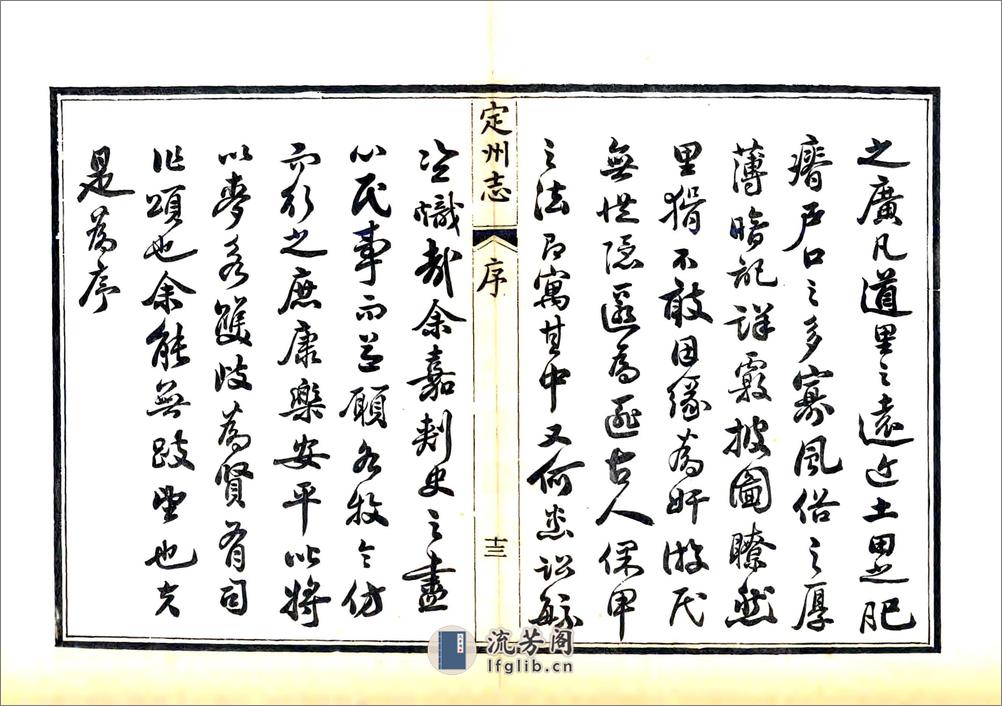 之廣凡道里之遠近土田之肥
瘠戶口之多寡風俗之厚
薄暗記詳覈披圖瞭然
里猾不敢因緣為奸游民
無從隱匿為非古人保甲
之法即寓其中又何患訟
定州志
序
十三
哉余嘉刺史之盡
心民事而益願各牧令仿
而行之庶康樂安平以將
以麥各雙歧為賢有司
作頌也余能無跂望也夫
是為序
流芳阁
lfglib.cn